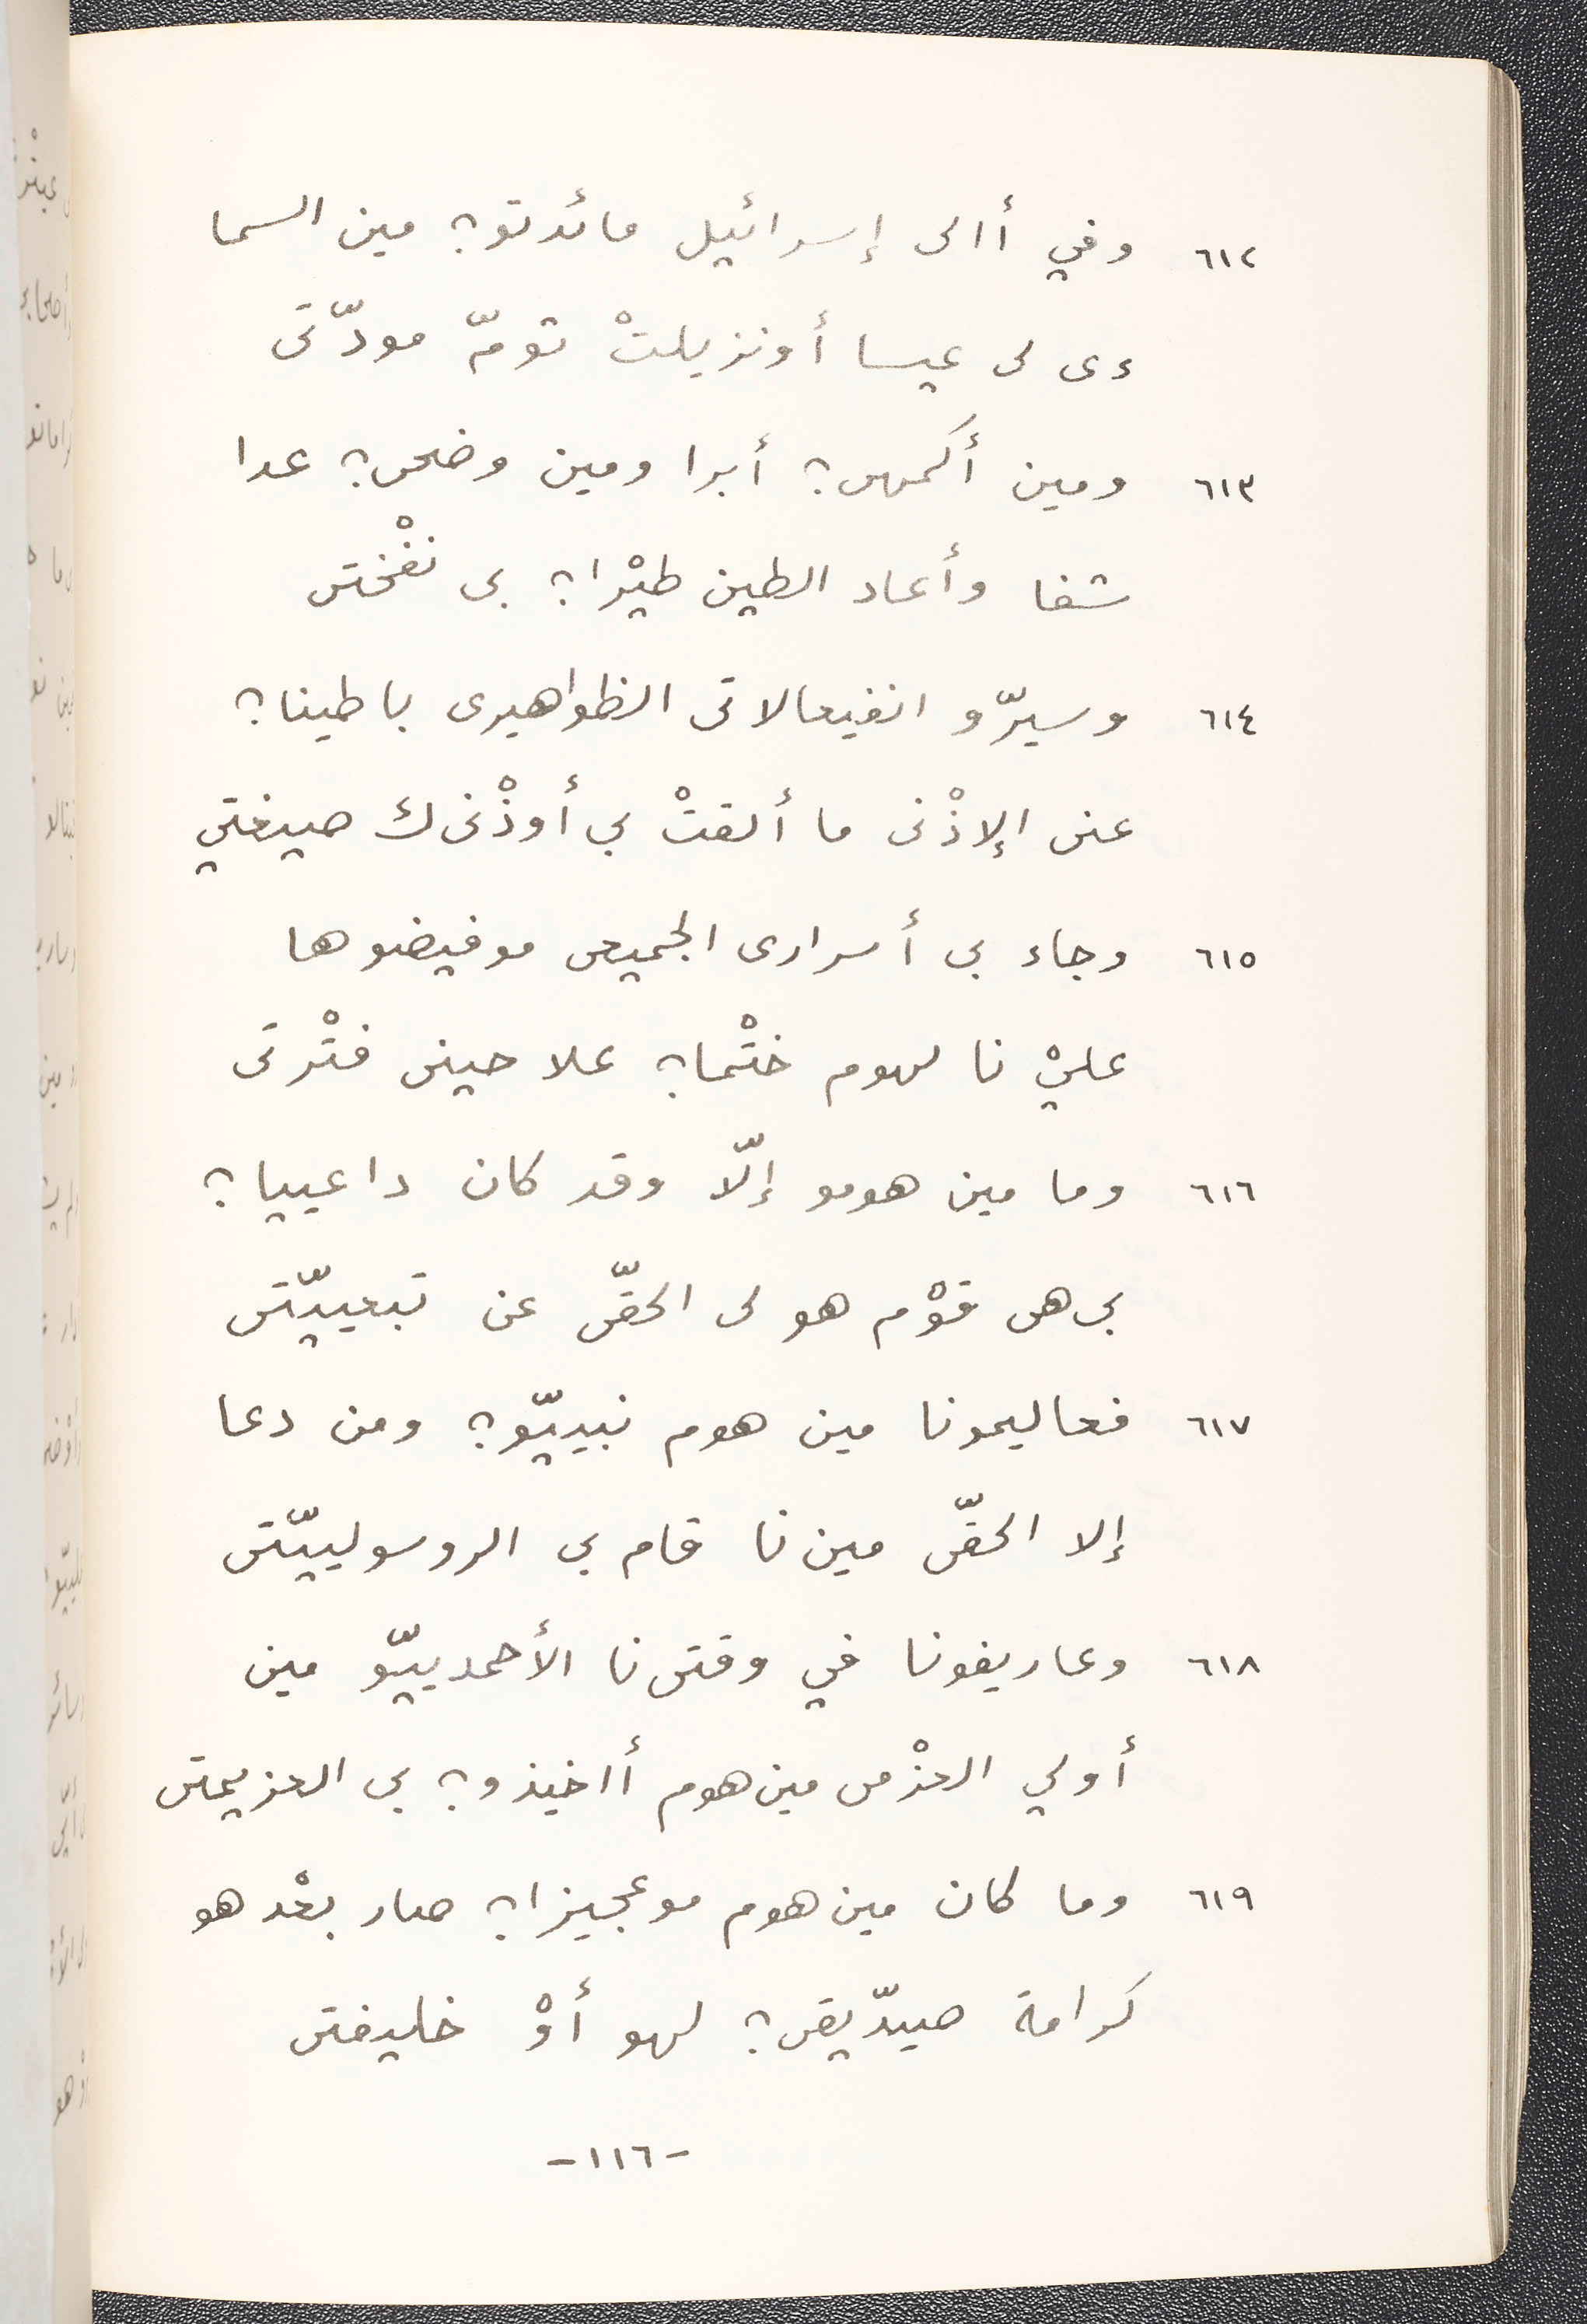 ٦١٢ وفي أالى إسرائيل مائدتو؟ مين السما
ءى لى عيسا أونزيلتْ تومّ مودّتى
٦١٣ ومين أكمهى؟ أبرا ومين وضحى؟ عدا
شفا وأعاد الطين طيْرا؟ بى نفْختى
٦١٤ وسيرّو انفيعالاتى الظواهيرى باطينا؟
عنى الإذْنى ما ألقتْ بي أوذْنىك صيغتي
٦١٥ وجاء بى أسرارى الجميعى موفيضوها
عليْنا لهوم ختْما؟ علا حينى فتْرتى
٦١٦ وما مين هومو إلّا وقد كان داعييا؟
بىهى قوْمهو لى الحقّى عن تبعييّتى
٦١٧ فعاليمونا مين هوم نبييّو؟ ومن دعا
إلا الحقّى ميننا قام بى الروسولييّتى
٦١٨ وعاريفونا في وقتىنا الأحمدييّو مين
أولي العزْمى مينهوم أاخيذو؟ بى العزيمتى
٦١٩ وما كان مينهوم موعجيزا؟ صار بعْدهو
كرامة صيدّيقى؟ لهو أوْ خليفتى
-١١٦-